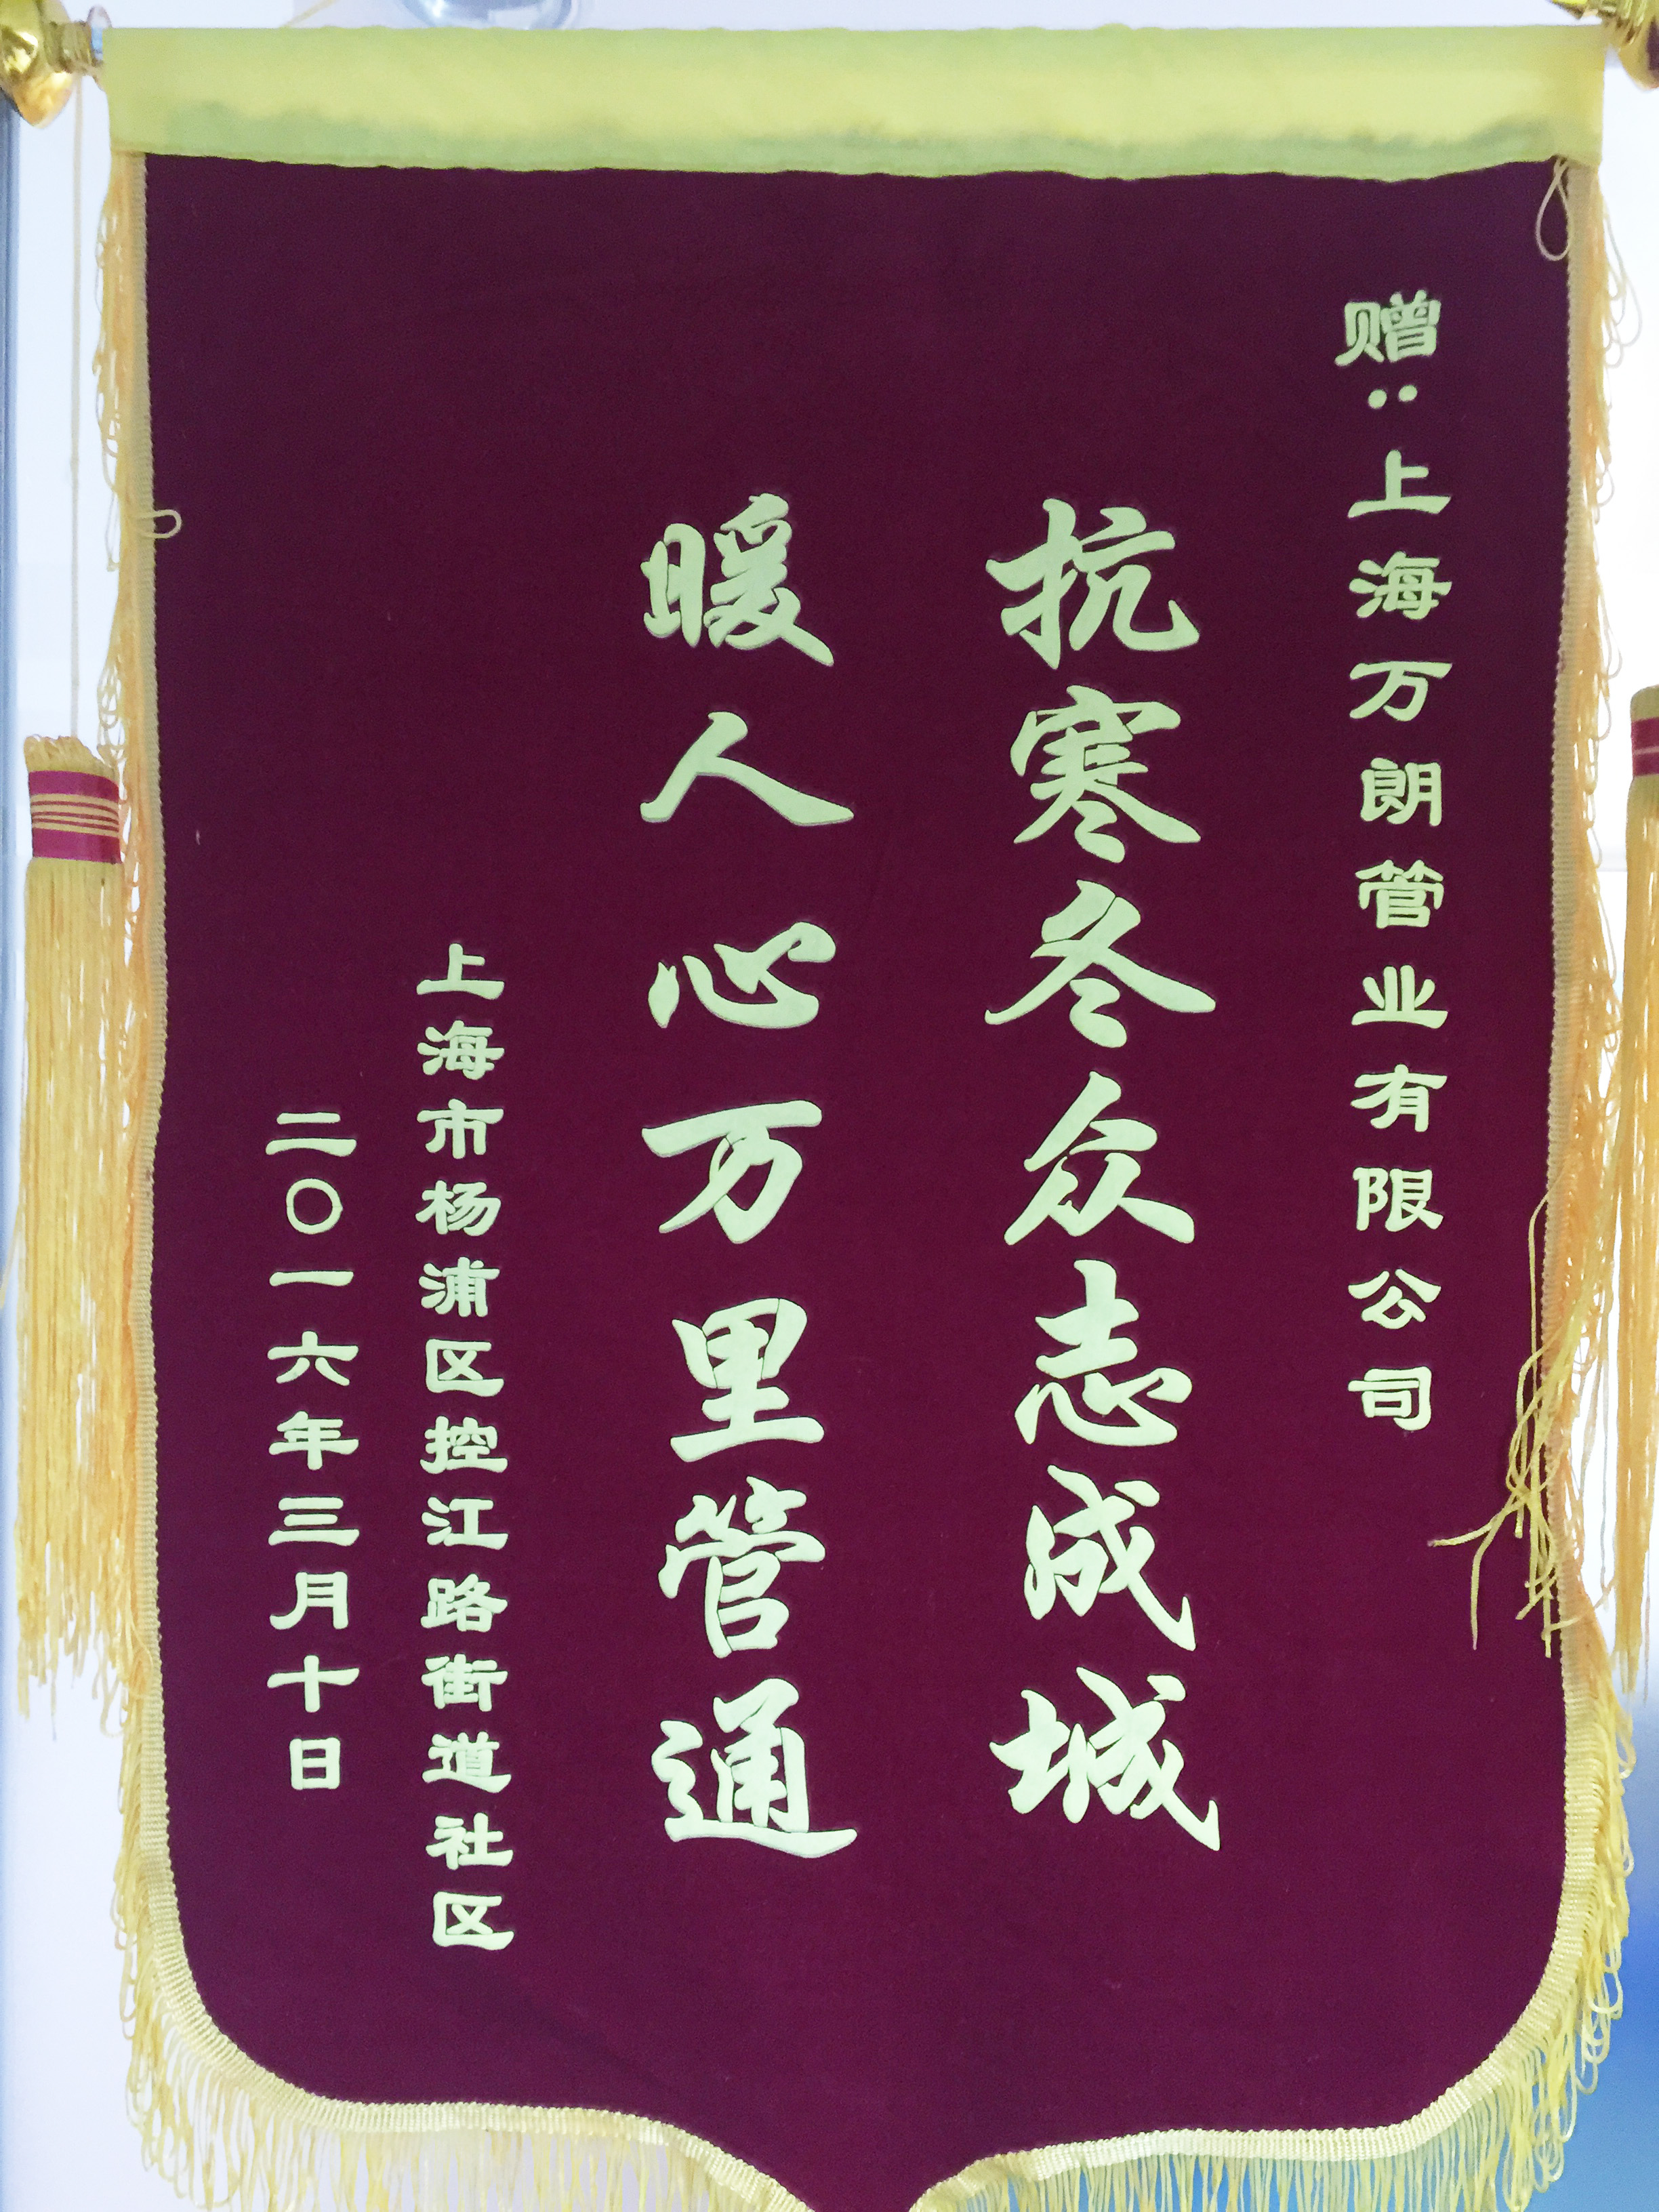 赠：上海万朗管业有限公司
抗寒冬众志成城
暖人心万里管通
上海市杨浦区控江路街道社区
二〇一六年三月十日